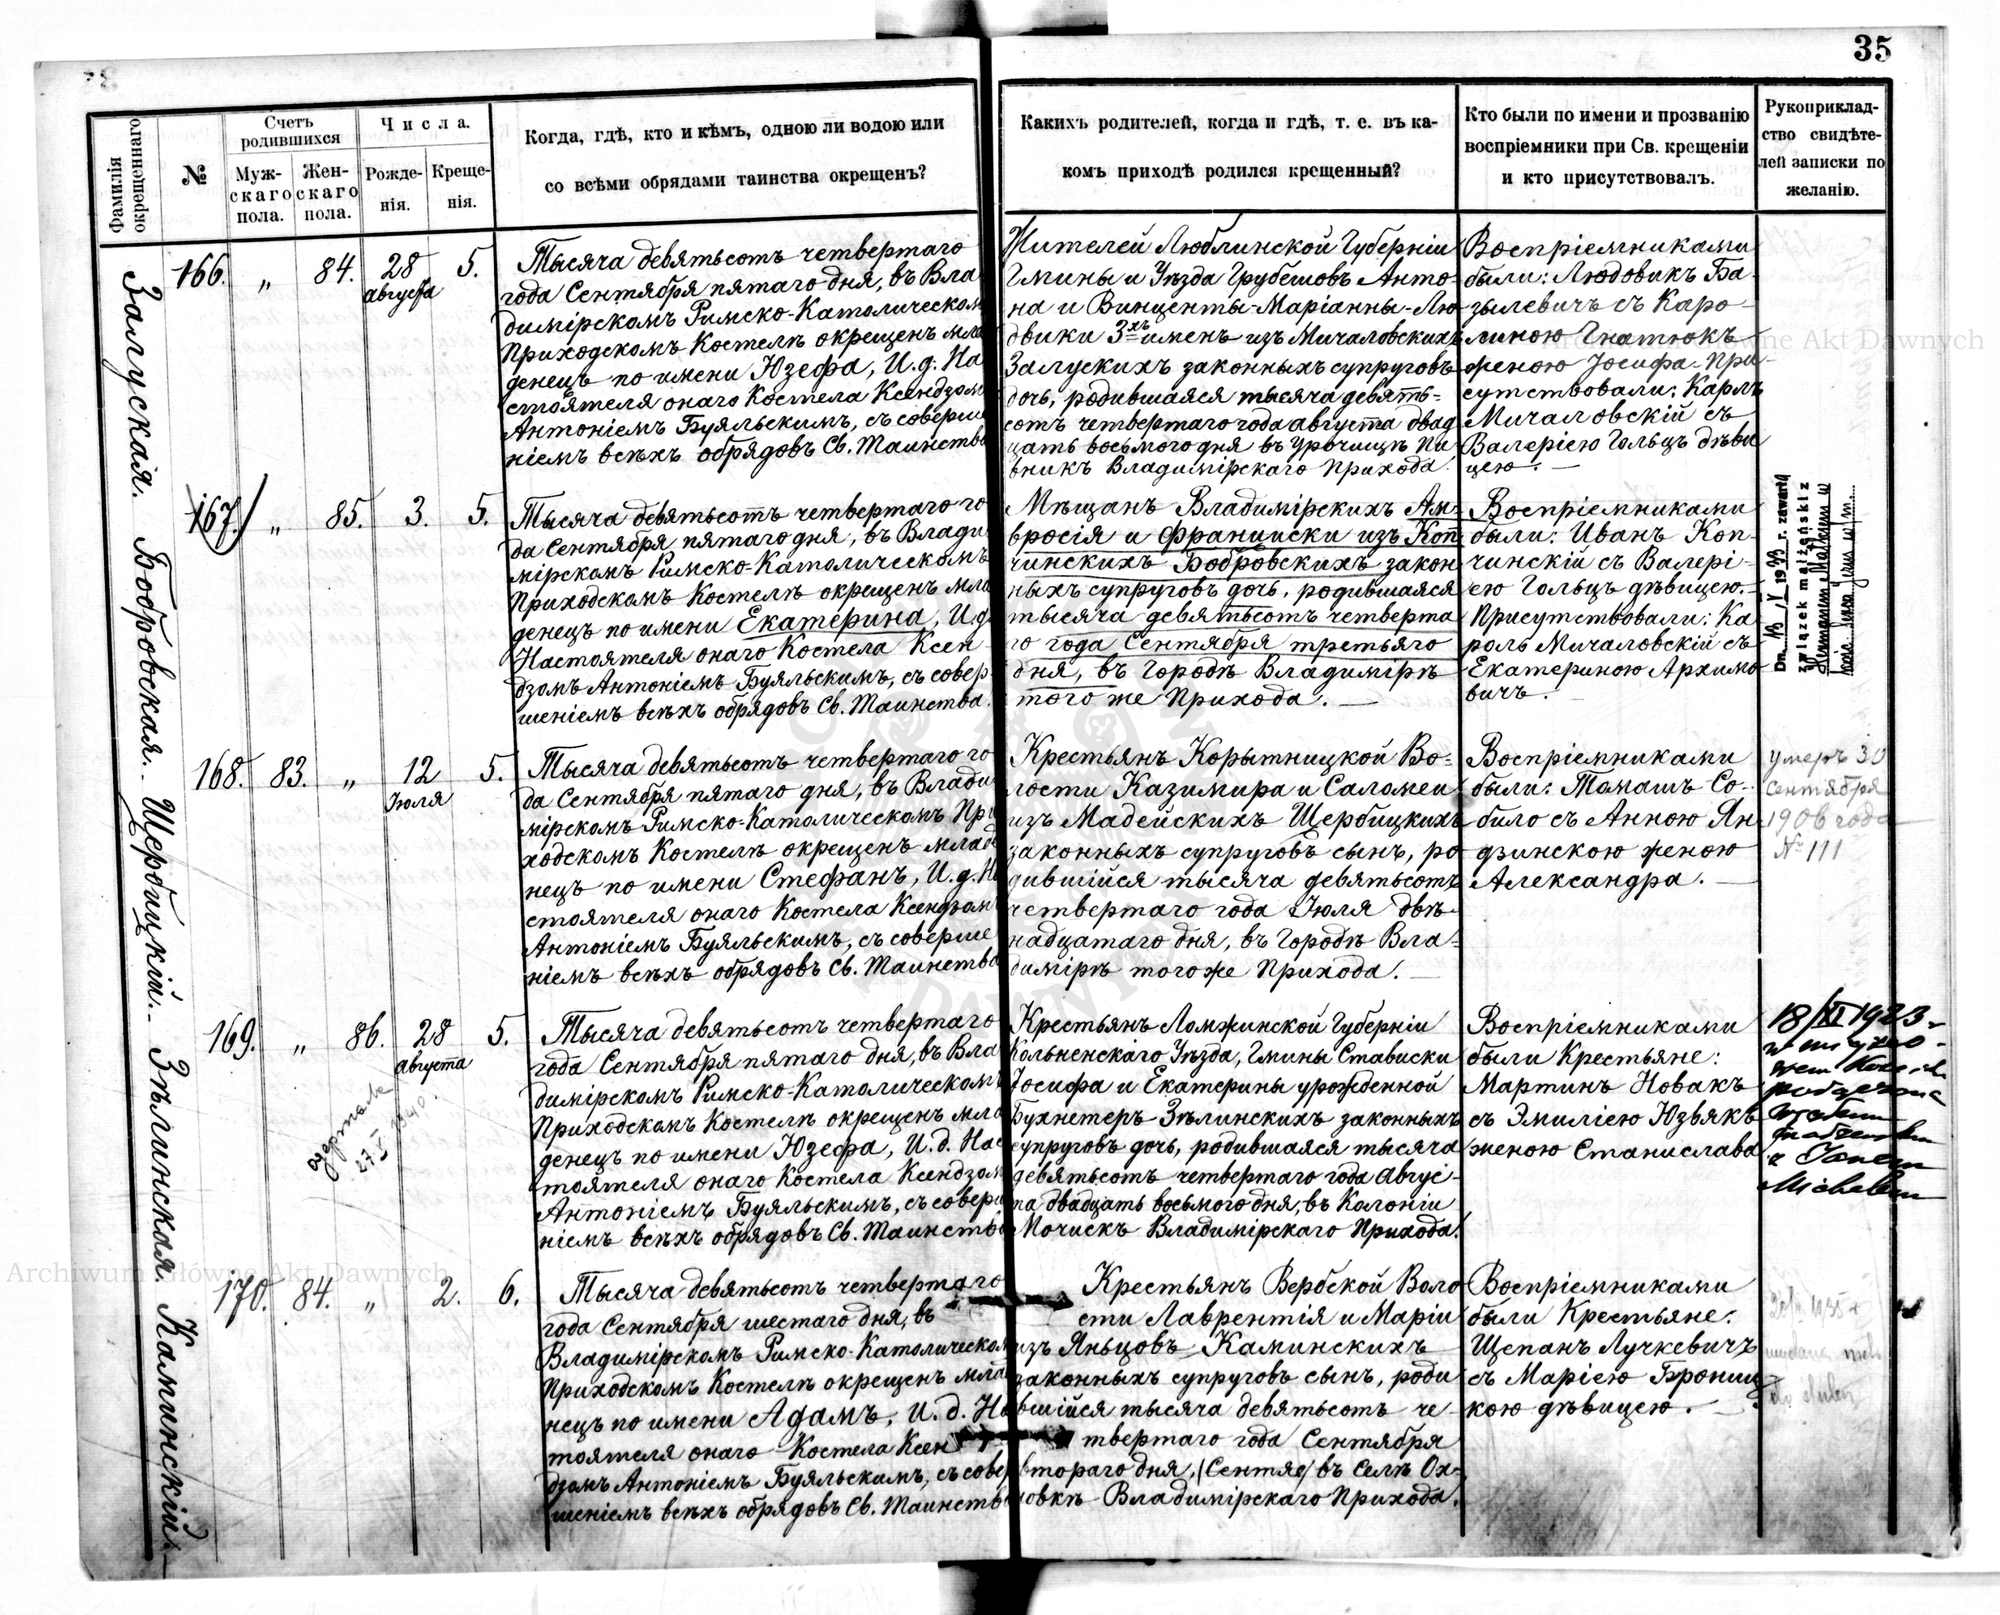 35
Фамилія окрещеннаго
№
Счетъ родившихся
Муж-
скаго
пола.
Жен-
скаго
пола.
Числа.
Рожде-
нія.
Креще-
нія.
Когда, гдѣ, кто и кѣмъ, одною ли водою или
со всѣми обрядами таинства окрещенъ?
Какихъ родителей, когда и гдѣ, т. е. въ ка-
комъ приходѣ родился крещенный?
Кто были по имени и прозванію
воспріемники при Св. крещеніи
и кто присутствовалъ.
Рукоприклад-
ство свидѣте-
лей записки по
желанію.
Залуская.
166. „ 84. 28 августа 5.
Тысяча девятьсотъ четвертаго
года Сентября пятаго дня, въ Вла
димірскомъ Римско-Католическом
Приходскомъ Костелѣ окрещенъ мла
денецъ по имени Юзефа, И. д. На
стоятеля онаго Костела Ксендзом
Антоніемъ Буяльскимъ, съ соверше
ніемъ всѣхъ обрядовъ Св. Таинства
Жителей Люблинской Губерніи
Гмины и Уѣзда Грубешовъ Анто-
на и Винценты-Маріанны-Лю
двики 3хъ именъ изъ Мичаловскихъ
Залускихъ законныхъ супруговъ
дочь, родившаяся тысяча девять-
сотъ четвертаго года августа двад
цать восьмого дня въ урочищѣ Пи
вникъ Владимірскаго Прихода.
Воспріемниками
были: Людовикъ Ба-
зылевичъ съ Каро-
линою Гнатюкъ
женою Іосифа. При-
сутствовали: Карлъ
Мичаловскій съ
Валеріею Гольцъ дѣви
цею.
Бобровская.
167. „ 85. 3. 5.
Тысяча девятьсотъ четвертаго го
да Сентября пятаго дня, въ Влади
мірскомъ Римско-Католическомъ
Приходскомъ Костелѣ окрещенъ мла
денецъ по имени Екатерина, И. д.
Настоятеля онаго Костела Ксен
дзомъ Антоніемъ Буяльскимъ, съ совер
шеніемъ всѣхъ обрядовъ Св. Таинства.
Мѣщанъ Владимірскихъ Ам-
вросія и Франциски изъ Коп
чинскихъ Бобровскихъ закон
ныхъ супруговъ дочь, родившаяся
тысяча девятьсотъ четверта
го года Сентября третьяго
дня, въ городѣ Владимірѣ
того же Прихода.
Воспріемниками
были: Иванъ Коп-
чинскій съ Валері-
ею Гольцъ дѣвицею.
Присутствовали: Ка
роль Мичаловскій съ
Екатериною Архимо
вичъ.
Dn. V 1933 r. zawarł
związek małżeński z
Щербицкій.
168. 83. „ 12 Іюля 5.
Тысяча девятьсотъ четвертаго го
да Сентября пятаго дня, въ Влади
мірскомъ Римско-Католическомъ При
ходскомъ Костелѣ окрещенъ младе
нецъ по имени Стефанъ, И. д. На
стоятеля онаго Костела Ксендзом
Антоніемъ Буяльскимъ, съ соверше
ніемъ всѣхъ обрядовъ Св. Таинства
Крестьянъ Корытницкой Во-
лости Казимира и Саломеи
изъ Мадейскихъ Щербицкихъ
законныхъ супруговъ сынъ, ро
дившійся тысяча девятьсотъ
четвертаго года Іюля двѣ-
надцатаго дня, въ городѣ Вла-
димірѣ того же Прихода.
Воспріемниками
были: Томашъ Со-
било съ Анною Ян
дзинскою женою
Александра.
умеръ 30
сентября
1906 года
№ 111
Зѣлинская.
169. „ 86. 28 августа 5.
Тысяча девятьсотъ четвертаго
года Сентября пятаго дня, въ Вла
димірскомъ Римско-Католическомъ
Приходскомъ Костелѣ окрещенъ мла
денецъ по имени Юзефа, И. д. Нас
тоятеля онаго Костела Ксендзом
Антоніемъ Буяльскимъ, съ соверше
ніемъ всѣхъ обрядовъ Св. Таинства
Крестьянъ Ломжинской Губерніи
Кольненскаго Уѣзда, Гмины Стависки
Іосифа и Екатерины урожденной
Бухнетеръ-Зѣлинскихъ законныхъ
супруговъ дочь, родившаяся тысяча
девятьсотъ четвертаго года Авгус-
та двадцать восьмого дня, въ Колоніи
Мочискъ Владимірскаго Прихода.
Воспріемниками
были Крестьяне:
Мартинъ Новакъ
съ Эмиліею Юзвякъ
женою Станислава
18/XI 1923
Каминскій.
170. 84. „ 2. 6.
Тысяча девятьсотъ четвертаго
года Сентября шестаго дня, въ
Владимірскомъ Римско-Католическом
Приходскомъ Костелѣ окрещенъ младе
нецъ по имени Адамъ, И. д. На
тоятеля онаго Костела Ксен
дзомъ Антоніемъ Буяльскимъ, съ сове
шеніемъ всѣхъ обрядовъ Св. Таинств
Крестьянъ Вербской Воло
сти Лаврентія и Маріи
изъ Яньцовъ Каминскихъ
законныхъ супруговъ сынъ, роди
вшійся тысяча девятьсотъ че
твертаго года Сентября
втораго дня, въ Селѣ Ох-
новкѣ Владимірскаго Прихода.
Воспріемниками
были Крестьяне:
Щепанъ Лучкевичъ
съ Маріею Брониц
кою дѣвицею.
Archiwum Główne Akt Dawnych